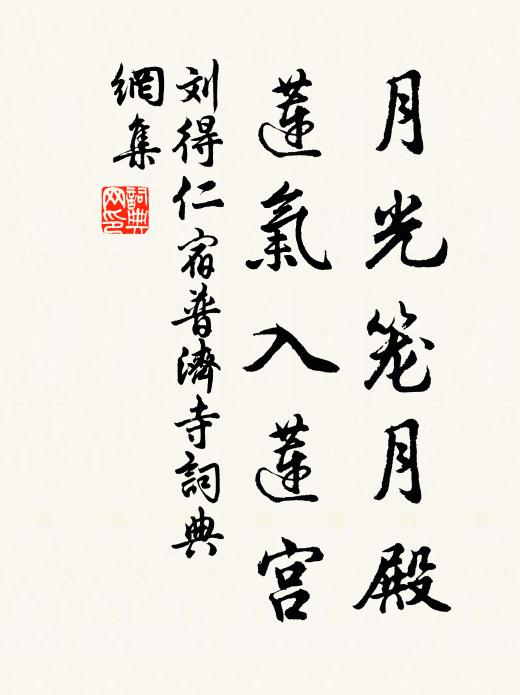 月光笼月殿
蓮氣入蓮宮
刘得仁宿普濟寺詞典
網集
詞典
网印